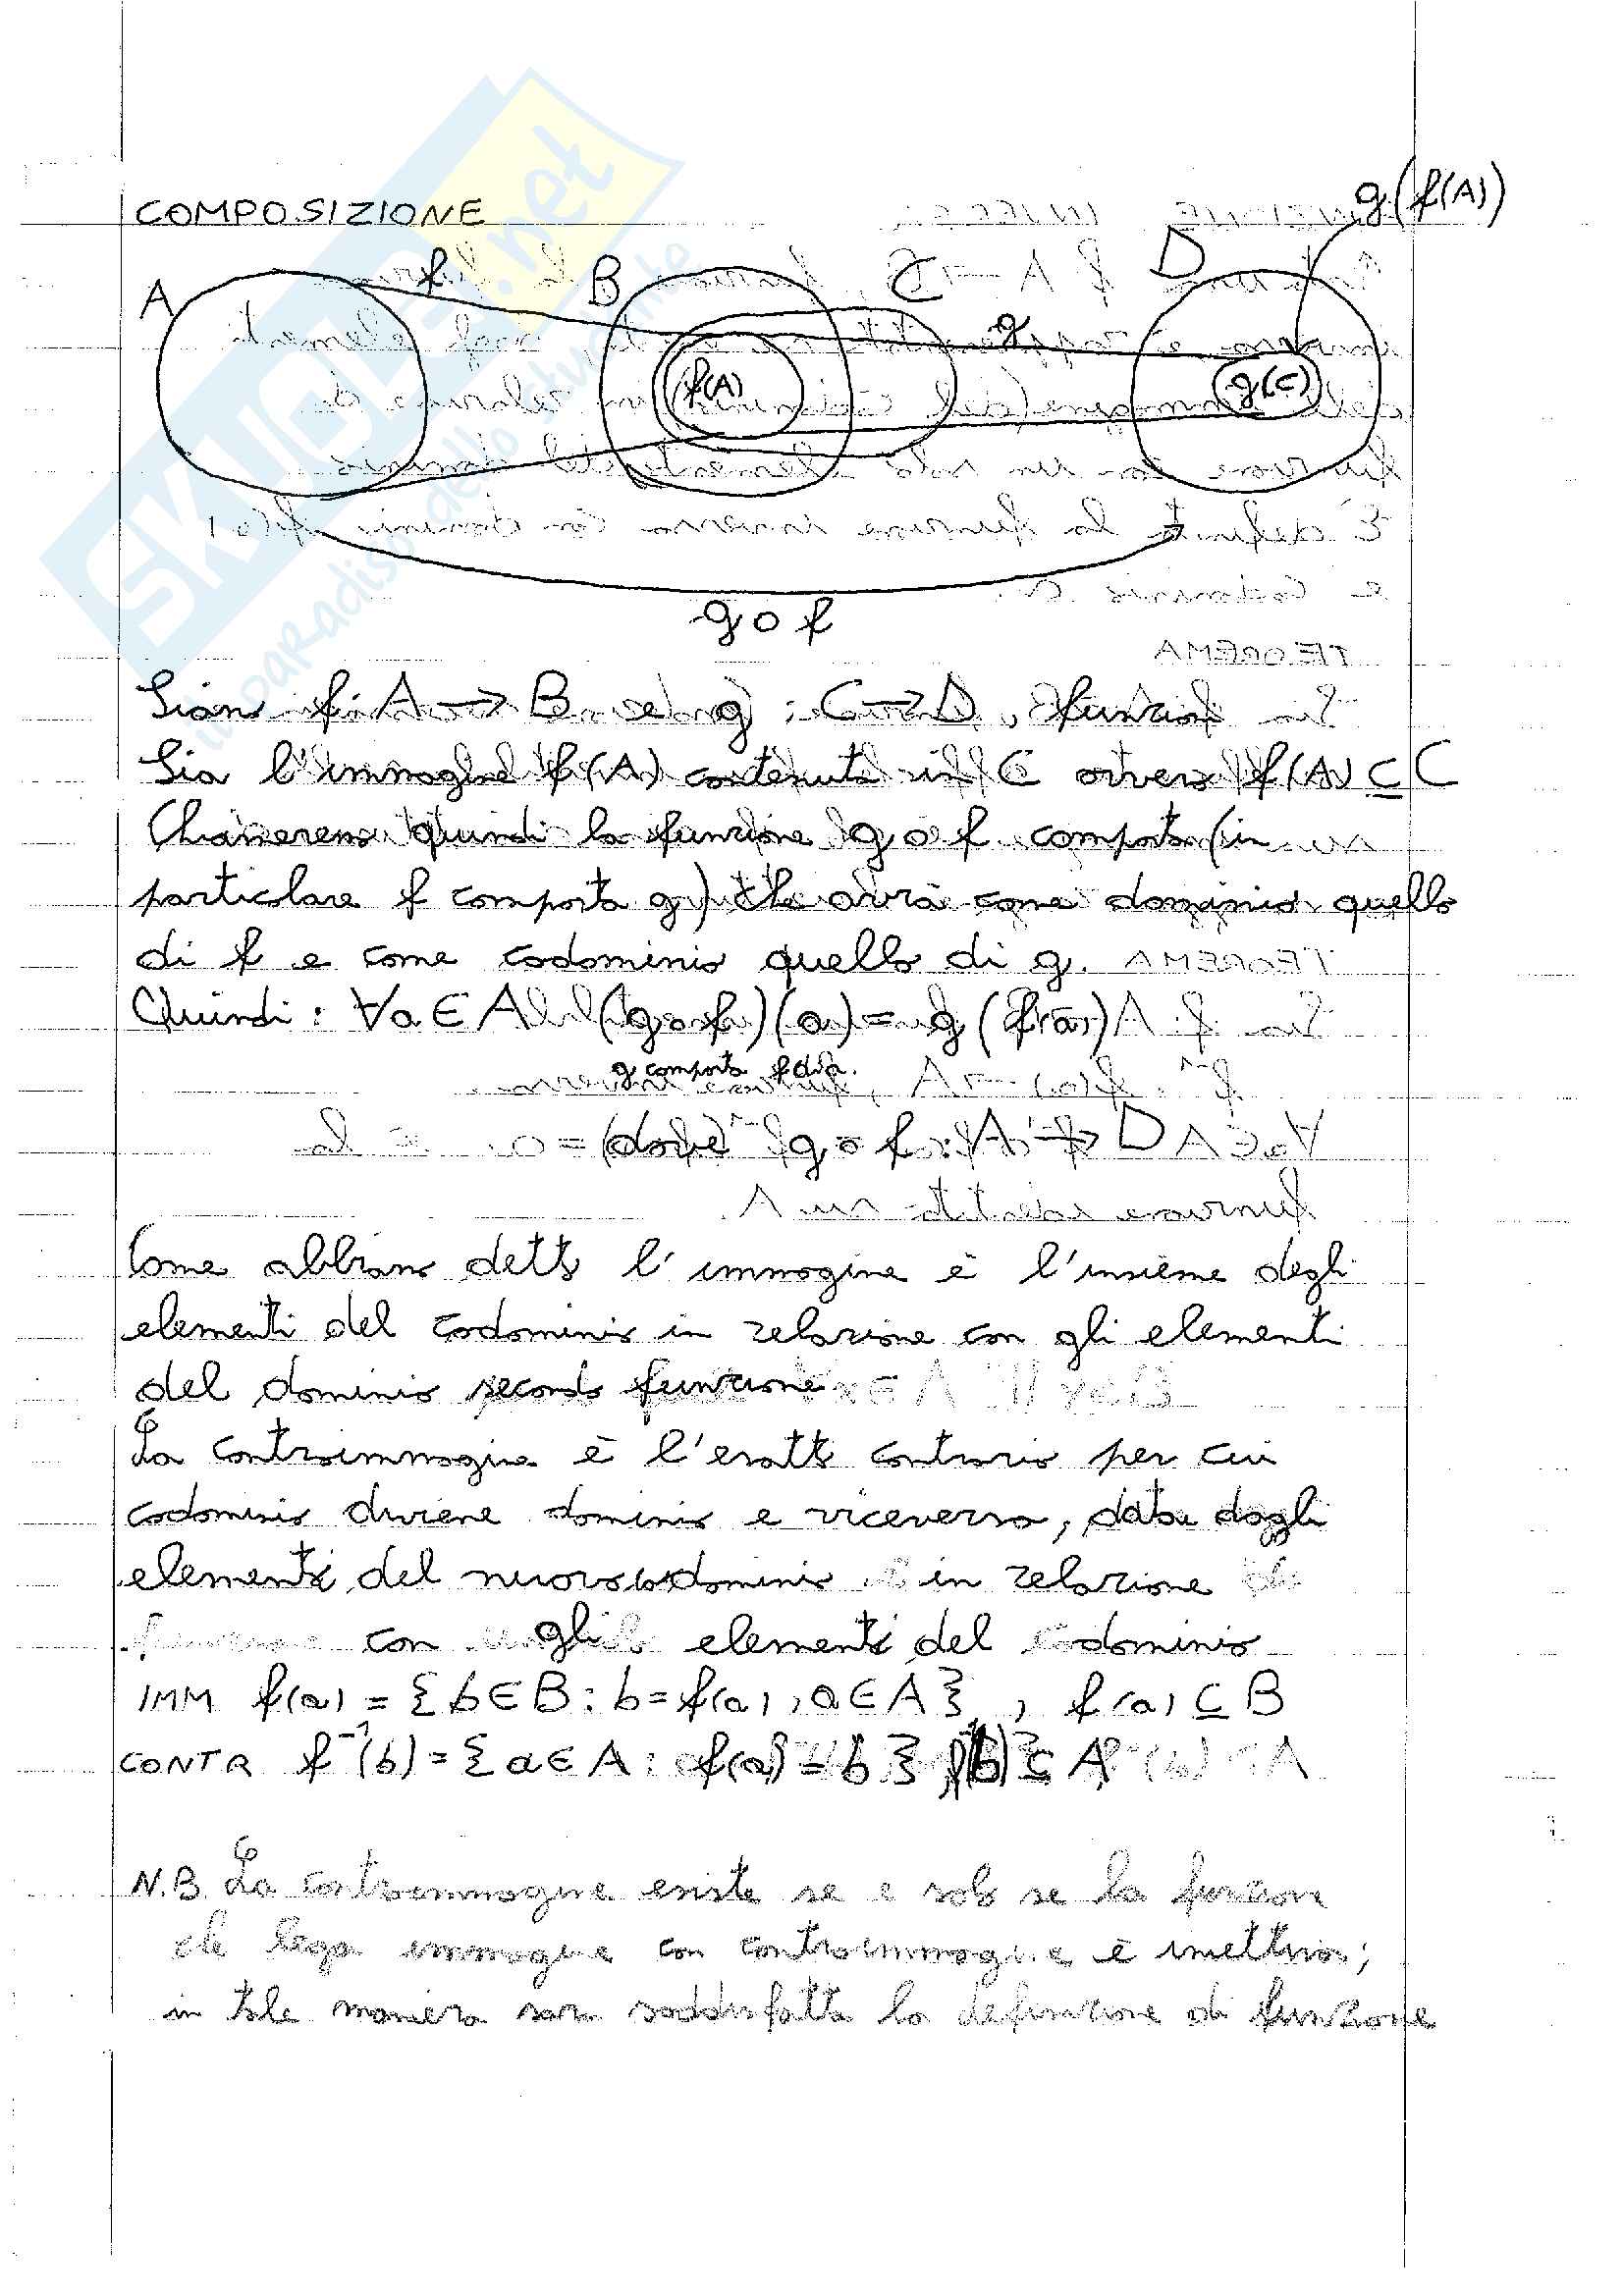 COMPOSIZIONE
g(f(A))
A f B C D
g
f(A) g(C)
g o f
Siano f: A → B e g : C → D funzioni
Sia l'immagine f(A) contenuta in C ovvero f(A) ⊆ C
Chiameremo quindi la funzione g o f composta (in
particolare f composta g) che avrà come dominio quello
di f e come codominio quello di g.
Quindi : ∀a ∈ A (g o f)(a) = g (f(a))
g composta f di a.
dove g o f : A → D
Come abbiamo detto l'immagine è l'insieme degli
elementi del codominio in relazione con gli elementi
del dominio secondo funzione
La controimmagine è l'esatto contrario per cui
codominio diviene dominio e viceversa, data dagli
elementi del nuovo codominio in relazione
con gli elementi del codominio
IMM f(a) = {b∈B : b=f(a), a∈A} , f(a) ⊆ B
CONTR f⁻¹(b) = {a∈A : f(a) = b } , f⁻¹(b) ⊆ A
N.B. La controimmagine esiste se e solo se la funzione
che lega immagine con controimmagine è iniettiva;
in tale maniera sarà soddisfatta la definizione di funzione
SKUOLA.net
un paradiso dello studente